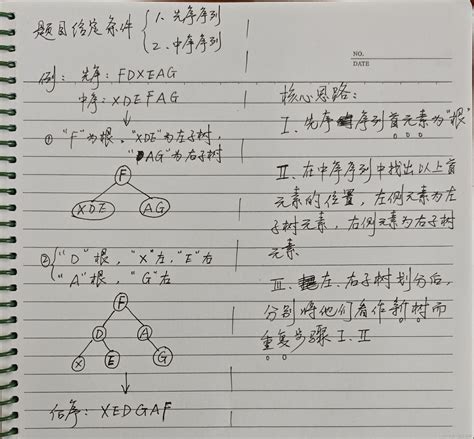 题目给定条件 { 1. 先序序列
2. 中序序列
例：先序：FDXEAG
中序：XDEFAG
① "F"为根，"XDE"为左子树，
"AG"为右子树
F
XDE AG
② { "D"根，"X"左，"E"右
"A"根，"G"右
F
D A
X E G
后序：XEDGAF
NO.
DATE
核心思路：
Ⅰ、先序序列首元素为"根"
Ⅱ、在中序序列中找出以上首
元素的位置，左侧元素为左
子树元素，右侧元素为右子树
元素
Ⅲ、左、右子树划分后，
分别将他们看作新树而
重复步骤Ⅰ、Ⅱ